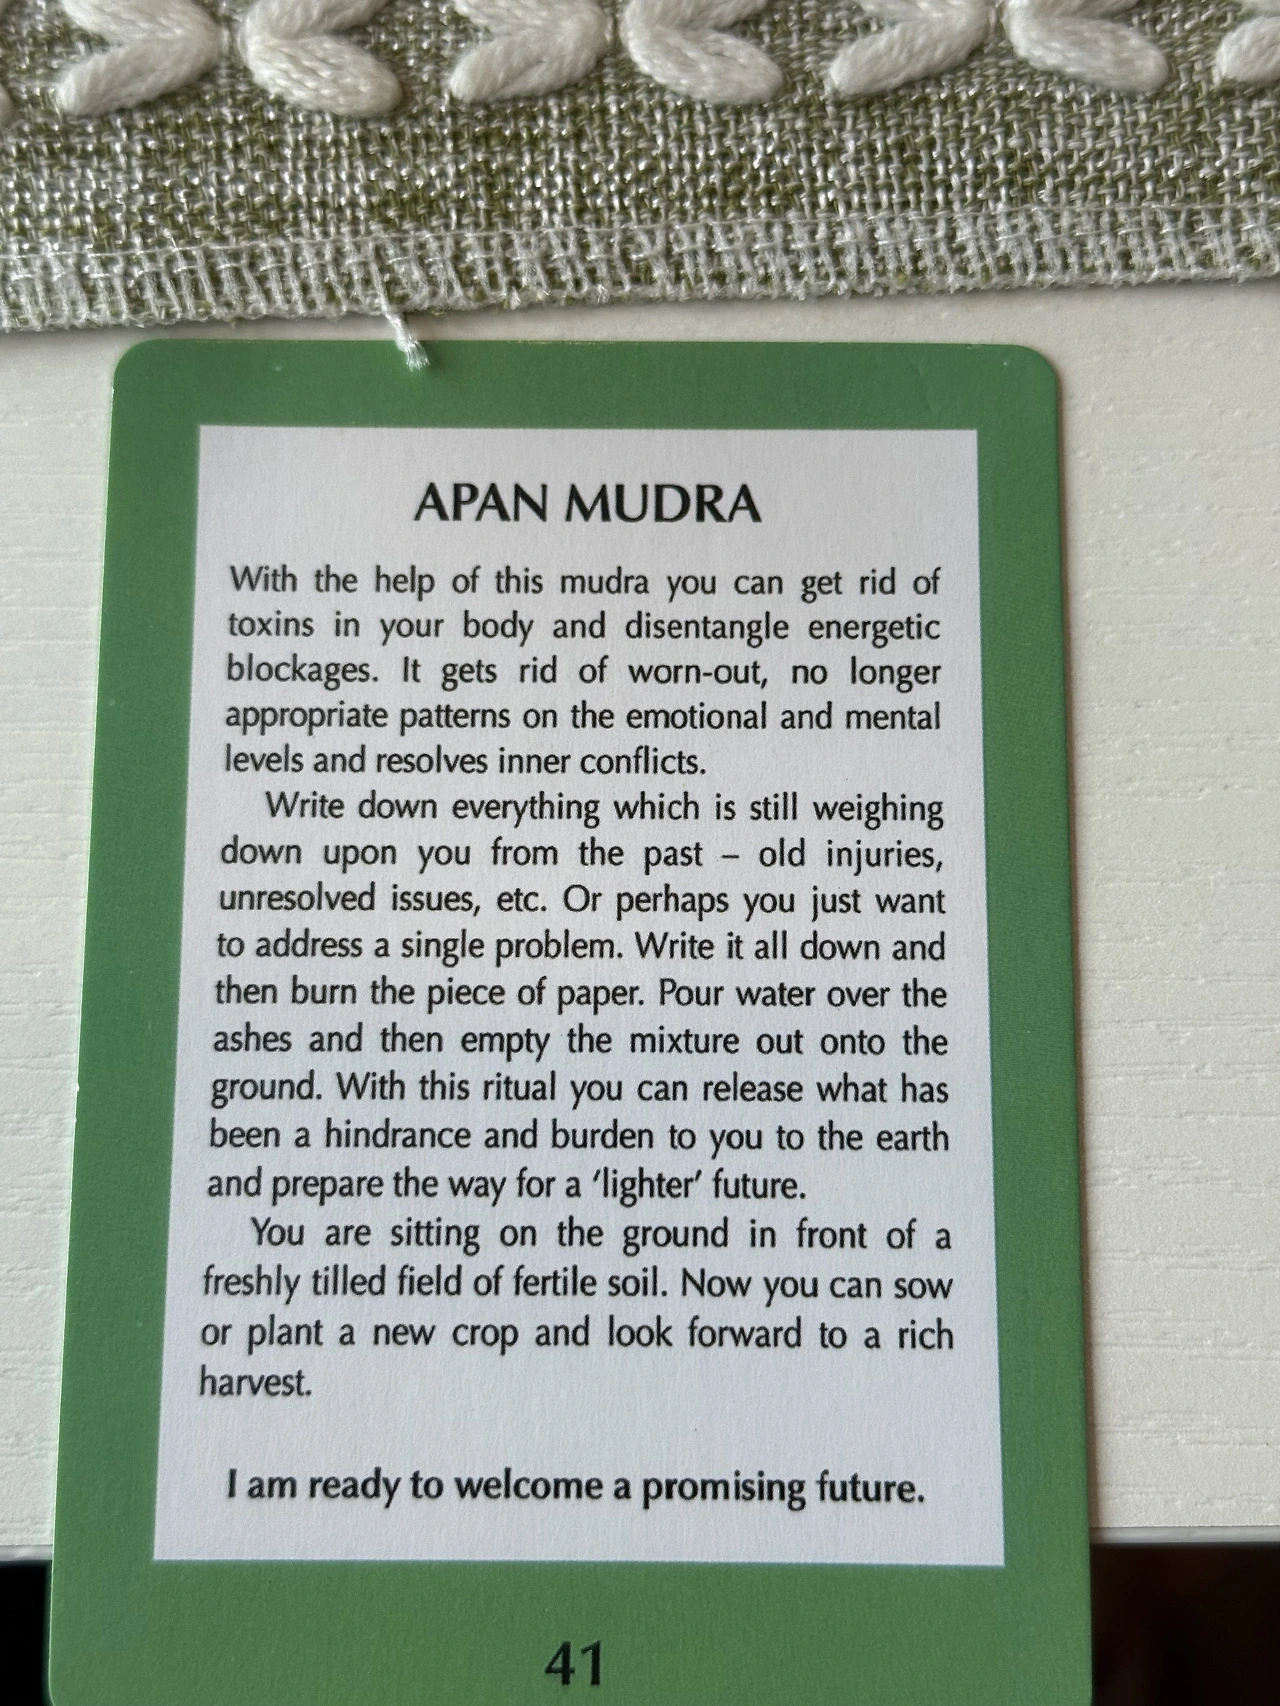 APAN MUDRA
With the help of this mudra you can get rid of
toxins in your body and disentangle energetic
blockages. It gets rid of worn-out, no longer
appropriate patterns on the emotional and mental
levels and resolves inner conflicts.
Write down everything which is still weighing
down upon you from the past – old injuries,
unresolved issues, etc. Or perhaps you just want
to address a single problem. Write it all down and
then burn the piece of paper. Pour water over the
ashes and then empty the mixture out onto the
ground. With this ritual you can release what has
been a hindrance and burden to you to the earth
and prepare the way for a ‘lighter’ future.
You are sitting on the ground in front of a
freshly tilled field of fertile soil. Now you can sow
or plant a new crop and look forward to a rich
harvest.
I am ready to welcome a promising future.
41